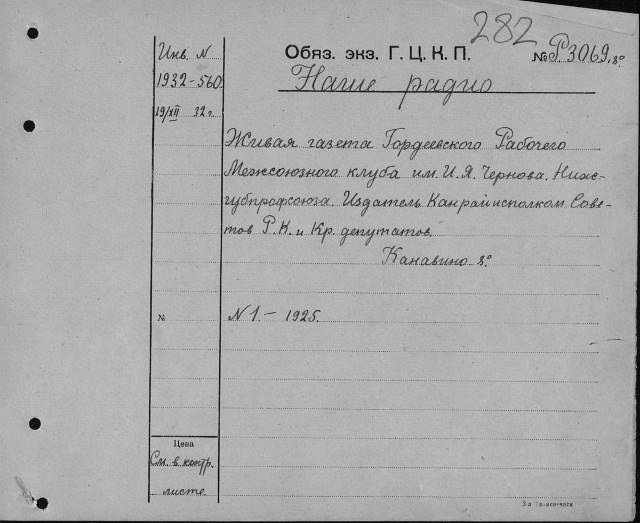 282
Инв. N
Обяз. экз. Г. Ц. К. П.
№ Р3069, 8°
1932-560
Наше радио
19/XII 32 г.
Живая газета Гордеевского Рабочего
Межсоюзного клуба им. И. Я. Чернова. Ниж-
губпрофсоюза. Издатель Канрайисполком Сове-
тов Р. К. и Кр. депутатов.
Канавино 8°
№
N 1. — 1925.
Цена
См. в контр.
листе.